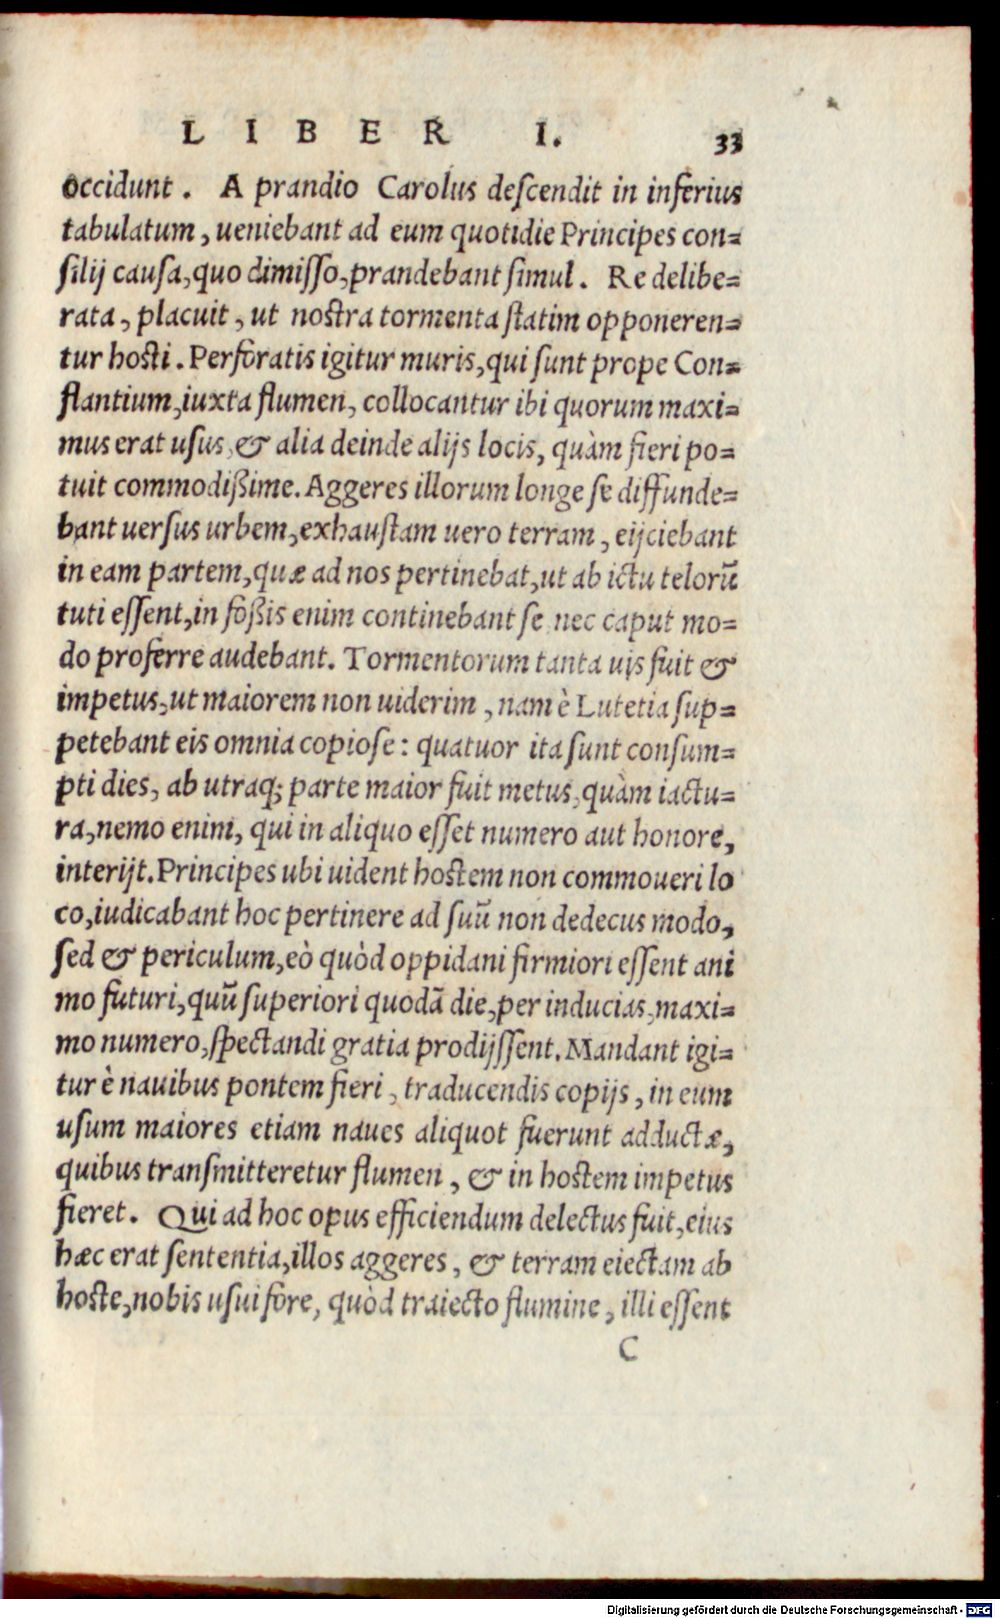 LIBER I. 33
occidunt. A prandio Carolus descendit in inferius
tabulatum, ueniebant ad eum quotidie Principes con=
silij causa, quo dimisso, prandebant simul. Re delibe=
rata, placuit, ut nostra tormenta statim opponeren=
tur hosti. Perforatis igitur muris, qui sunt prope Con=
flantium, iuxta flumen, collocantur ibi quorum maxi=
mus erat usus, & alia deinde alijs locis, quàm fieri po=
tuit commodißime. Aggeres illorum longe se diffunde=
bant uersus urbem, exhaustam uero terram, eijciebant
in eam partem, quæ ad nos pertinebat, ut ab ictu telorū
tuti essent, in foßis enim continebant se nec caput mo=
do proferre audebant. Tormentorum tanta uis fuit &
impetus, ut maiorem non uiderim, nam è Lutetia sup=
petebant eis omnia copiose: quatuor ita sunt consum=
pti dies, ab utraq; parte maior fuit metus, quàm iactu=
ra, nemo enim, qui in aliquo esset numero aut honore,
interijt. Principes ubi uident hostem non commoueri lo
co, iudicabant hoc pertinere ad suū non dedecus modo,
sed & periculum, eò quòd oppidani firmiori essent ani
mo futuri, quū superiori quodā die, per inducias, maxi=
mo numero, spectandi gratia prodijssent. Mandant igi=
tur è nauibus pontem fieri, traducendis copijs, in eum
usum maiores etiam naues aliquot fuerunt adductæ,
quibus transmitteretur flumen, & in hostem impetus
fieret. Qui ad hoc opus efficiendum delectus fuit, eius
hæc erat sententia, illos aggeres, & terram eiectam ab
hoste, nobis usui fore, quòd traiecto flumine, illi essent
C
Digitalisierung gefördert durch die Deutsche Forschungsgemeinschaft - DFG